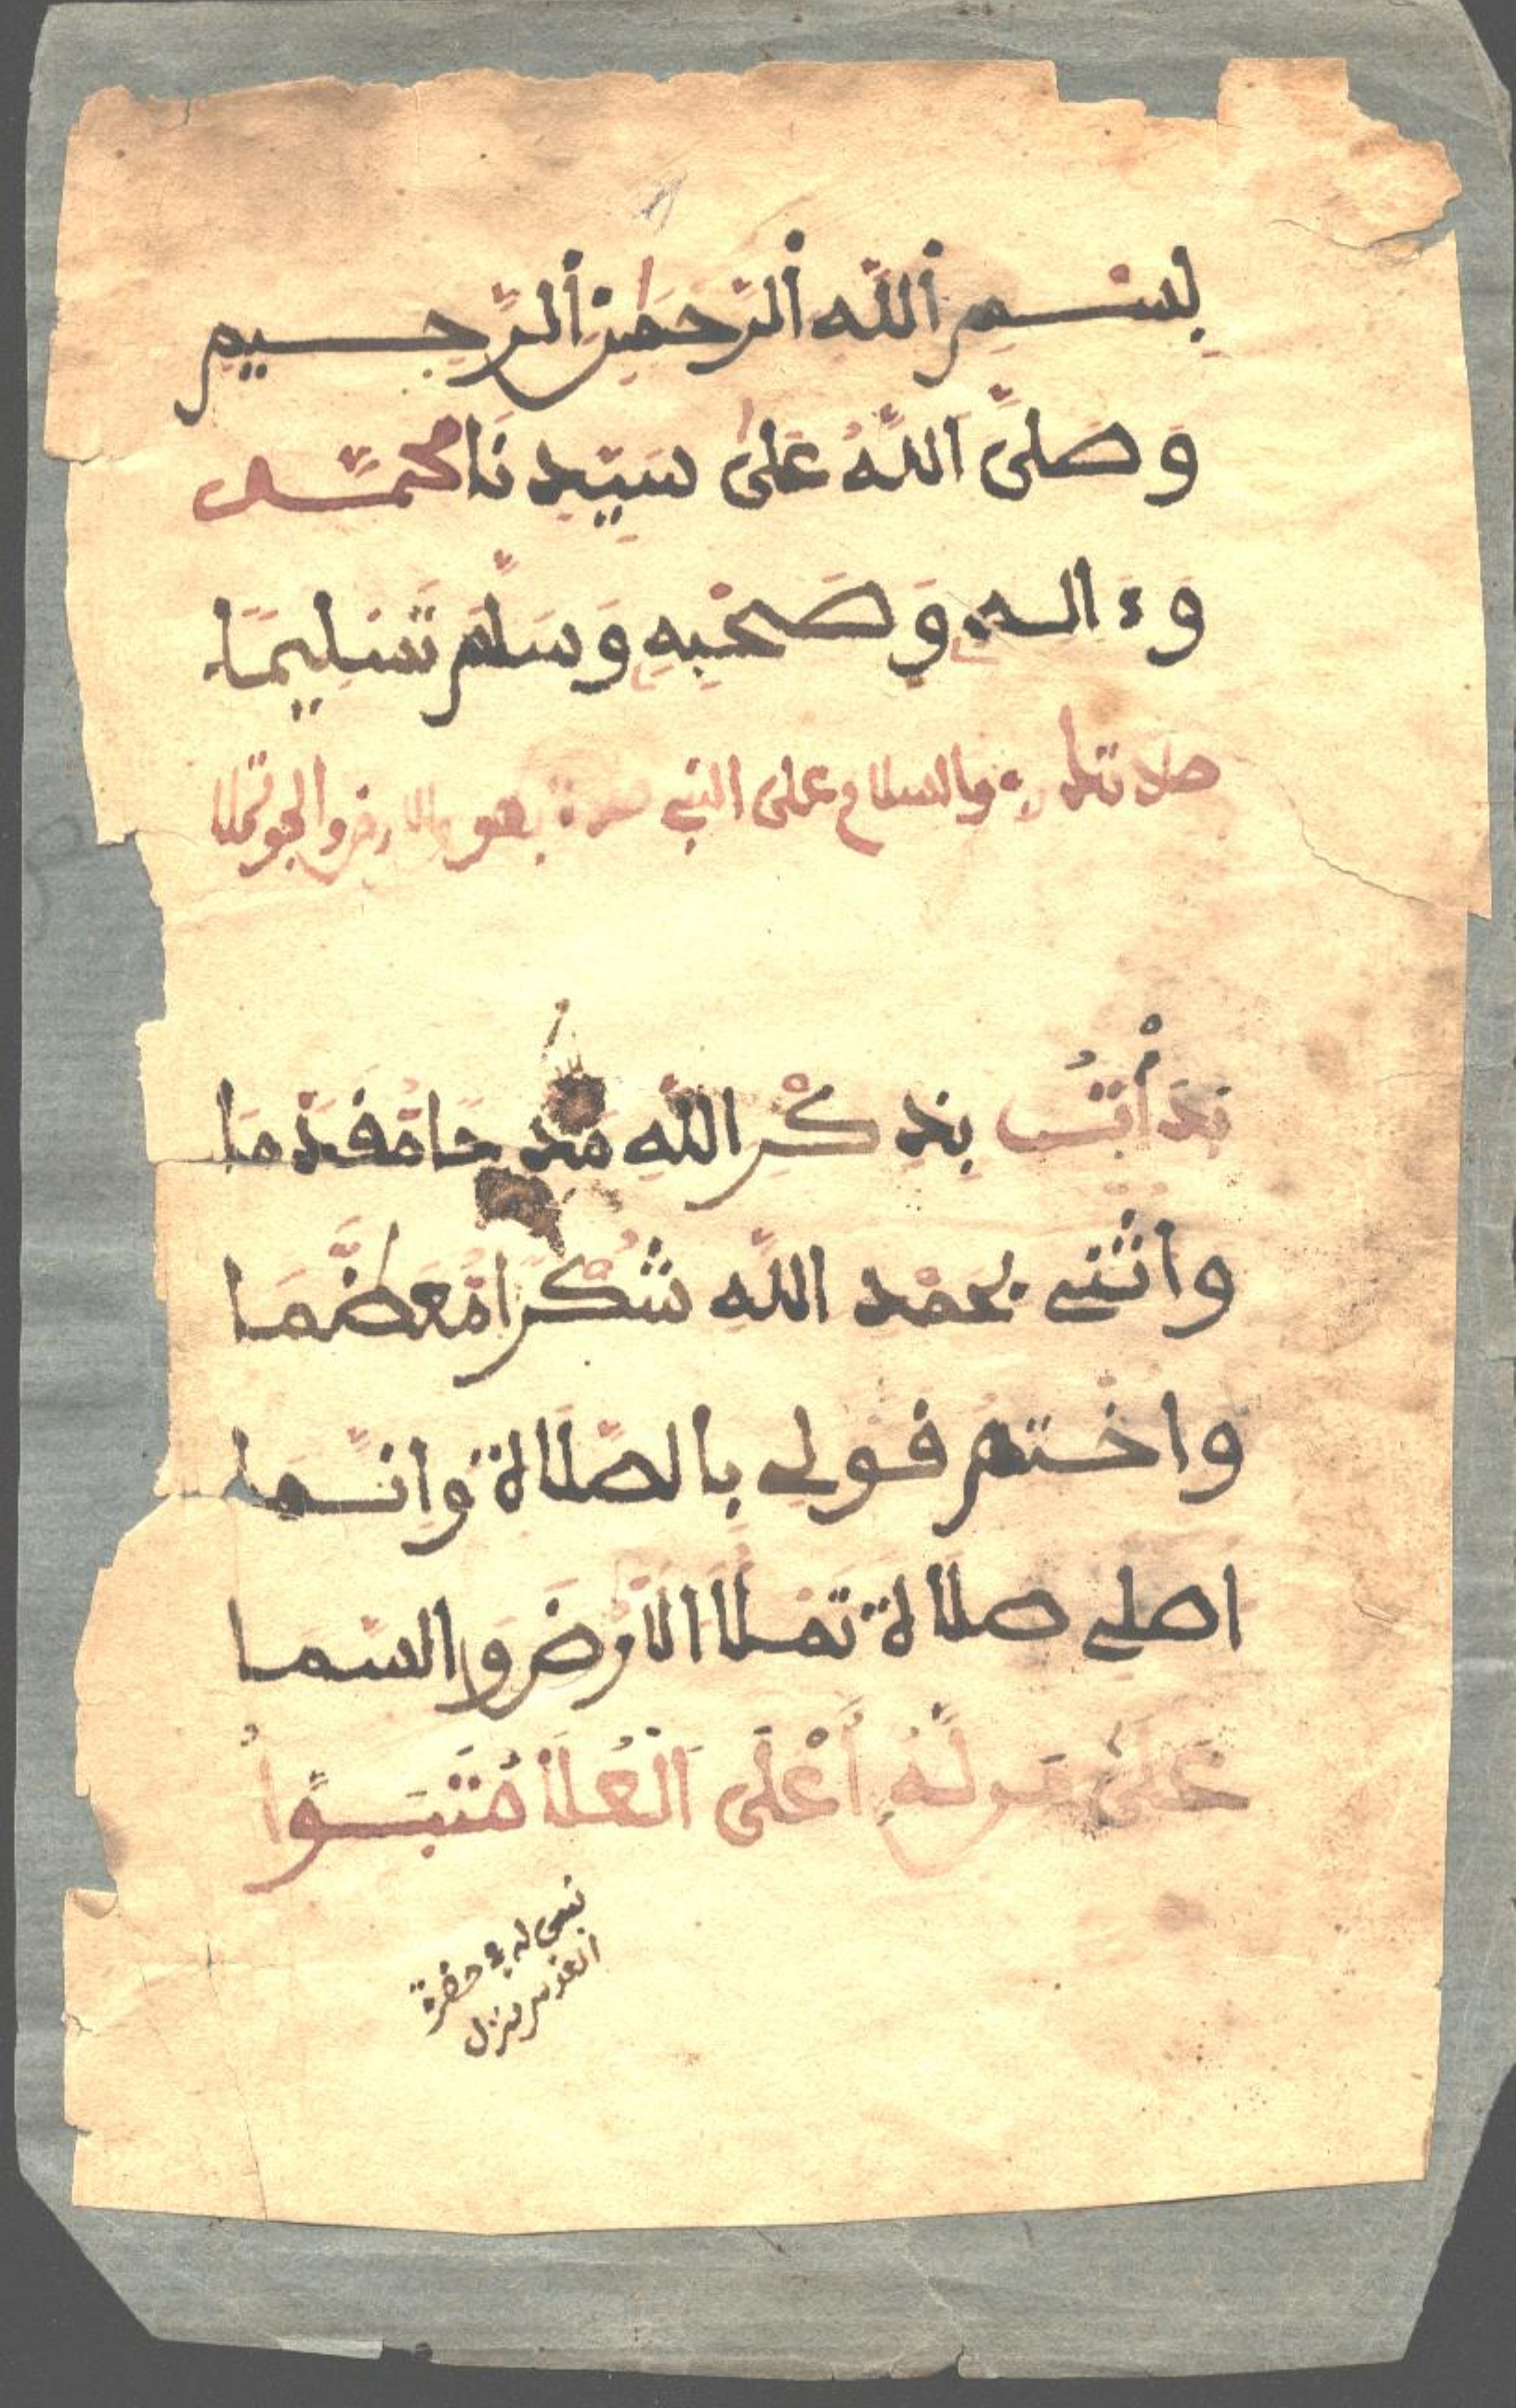 بِسْــمِ اللَّهِ الرَّحْمَٰنِ الرَّحِــيمِ
وَصَلَّى اللَّهُ عَلَىٰ سَيِّدِنَا مُحَمَّــد
وَءَالِــهِ وَصَحْبِهِ وَسَلَّمَ تَسْلِيمًا
والسلام على النبي والارض والجو
بَدَأْتُ بِذِكْرِ اللَّهِ مَدْحًا مُقَدَّمَا
واثنى بحمْد اللَّه شُكْرًا مُعَظَّمَا
واخْتم قولى بالصَّلَاة وَانَّــما
اصلى صلاة تَمْلَأ الَارْضَ والسّما
عَلَى مَن لَهُ أَعْلَى الْعُلَا مُتَبَــوَّأُ
نبى له في حضرة
القدس منزل